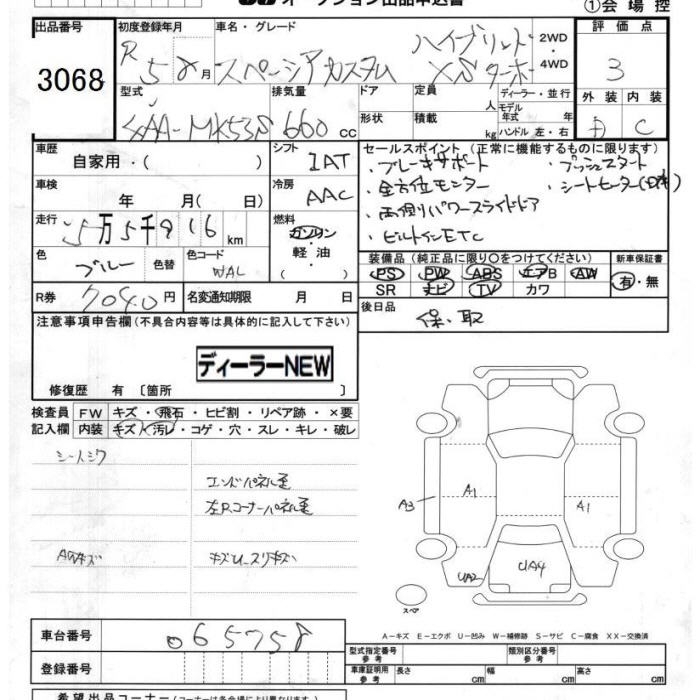 オークション出品申込書
①会場控
出品番号
3068
初度登録年月
R 5 8月
車名・グレード
スペーシアカスタム
ハイブリッド
XSターボ
2WD
・
4WD
評価点
3
外装 内装
D C
型式
5AA-MK53S
排気量
660 cc
ドア
形状
定員
人
積載
kg
ディーラー・並行
モデル
年式 年
ハンドル 左・右
車歴
自家用・( )
シフト
IAT
車検
年 月( 日)
冷房
AAC
走行
5万5千916 km
燃料
ガソリン
・
軽油
( )
色
ブルー
色替
色コード
WAL
R券
7040円
名変通知期限 月 日
セールスポイント(正常に機能するものに限ります)
・ブレーキサポート
・プッシュスタート
・全方位モニター
・シートヒーター
・両側パワースライドドア
・ビルトインETC
装備品(純正品に限り○をつけてください)
PS PW ABS エアB AW
SR ナビ TV カワ
新車保証書
有・無
後日品
保・取
注意事項申告欄(不具合内容等は具体的に記入して下さい)
ディーラーNEW
修復歴 有〔箇所 〕
検査員
記入欄
FW キズ・飛石・ヒビ割・リペア跡・×要
内装 キズ・汚レ・コゲ・穴・スレ・キレ・破レ
シートシワ
エンドパネル歪
左Rコーナーパネル歪
AWキズ
A3
A1
A1
UA2
UA4
スペア
A-キズ E-エクボ U-凹み W-補修跡 S-サビ C-腐食 XX-交換済
車台番号
065758
登録番号
型式指定番号
参考
類別区分番号
参考
車庫証明用
参考
長さ cm
幅 cm
高さ cm
希望出品コーナー(コーナーは各会場により異なります)